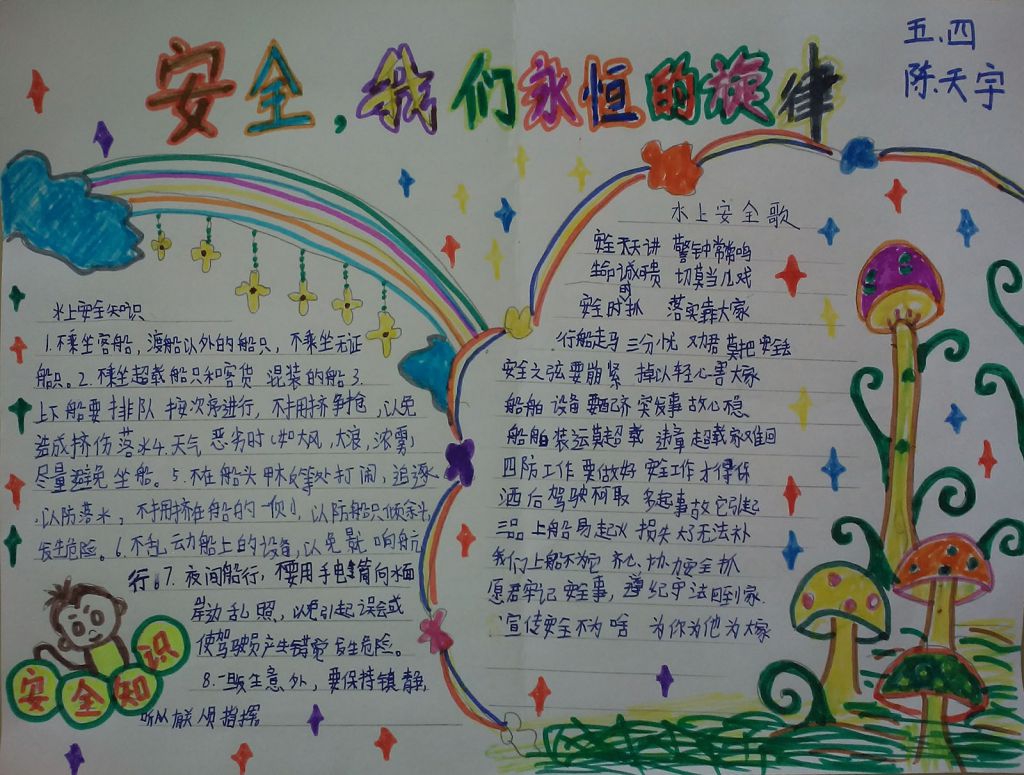 安全，我们永恒的旋律
五.四
陈天宇
水上安全知识
1.不乘坐客船，渡船以外的船只，不乘坐无证
船只。2.不乘坐超载船只和客货 混装的船3.
上下船要排队 按次序进行，不拥挤争抢，以免
造成挤伤落水4.天气 恶劣时(如大风，大浪，浓雾)
尽量避免坐船。5.不在船头甲板等处打闹，追逐
以防落水，不拥挤在船的一侧，以防船只倾斜
发生危险。6.不乱动船上的设备，以免影响航
行。7.夜间船行，不要用手电筒向水面
岸边乱照，以免引起误会或
使驾驶员产生错觉发生危险。
8.一旦发生意外，要保持镇静，
听从有关人员指挥
安全知识
水上安全歌
安全天天讲 警钟常常鸣
生命诚可贵 切莫当儿戏
安全时时抓 落实靠大家
行船走马三分忧 劝君莫把安全丢
安全之弦要崩紧 掉以轻心害大家
船舶设备要配齐 突发事故心稳
船舶装运莫超载 违章超载家难回
四防工作要做好 安全工作才得保
酒后驾驶不可取 多起事故它引起
三品上船易起火 损失太大无法补
我们上船不为它 齐心协力安全抓
愿君牢记安全事，遵纪守法回到家.
宣传安全不为啥 为你为他为大家